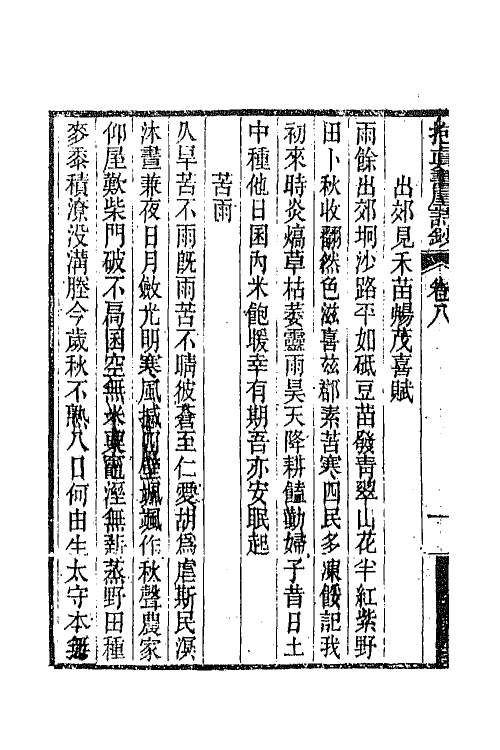 抱真書屋詩鈔
卷八
一
出郊見禾苗暢茂喜賦
雨餘出郊坰沙路平如砥豆苗發青翠山花半紅紫野
田卜秋收翻然色滋喜茲郡素苦寒四民多凍餒記我
初來時炎熇草枯萎靈雨昊天降耕饁勤婦子昔日土
中種他日囷內米飽暖幸有期吾亦安眠起
苦雨
久旱苦不雨旣雨苦不晴彼蒼至仁愛胡爲虐斯民溟
沐晝兼夜日月斂光明寒風撼四壁颯颯作秋聲農家
仰屋歎柴門破不扃囷空無米㸑竈溼無薪蒸野田種
麥黍積潦没溝塍今歲秋不熟八口何由生太守本無